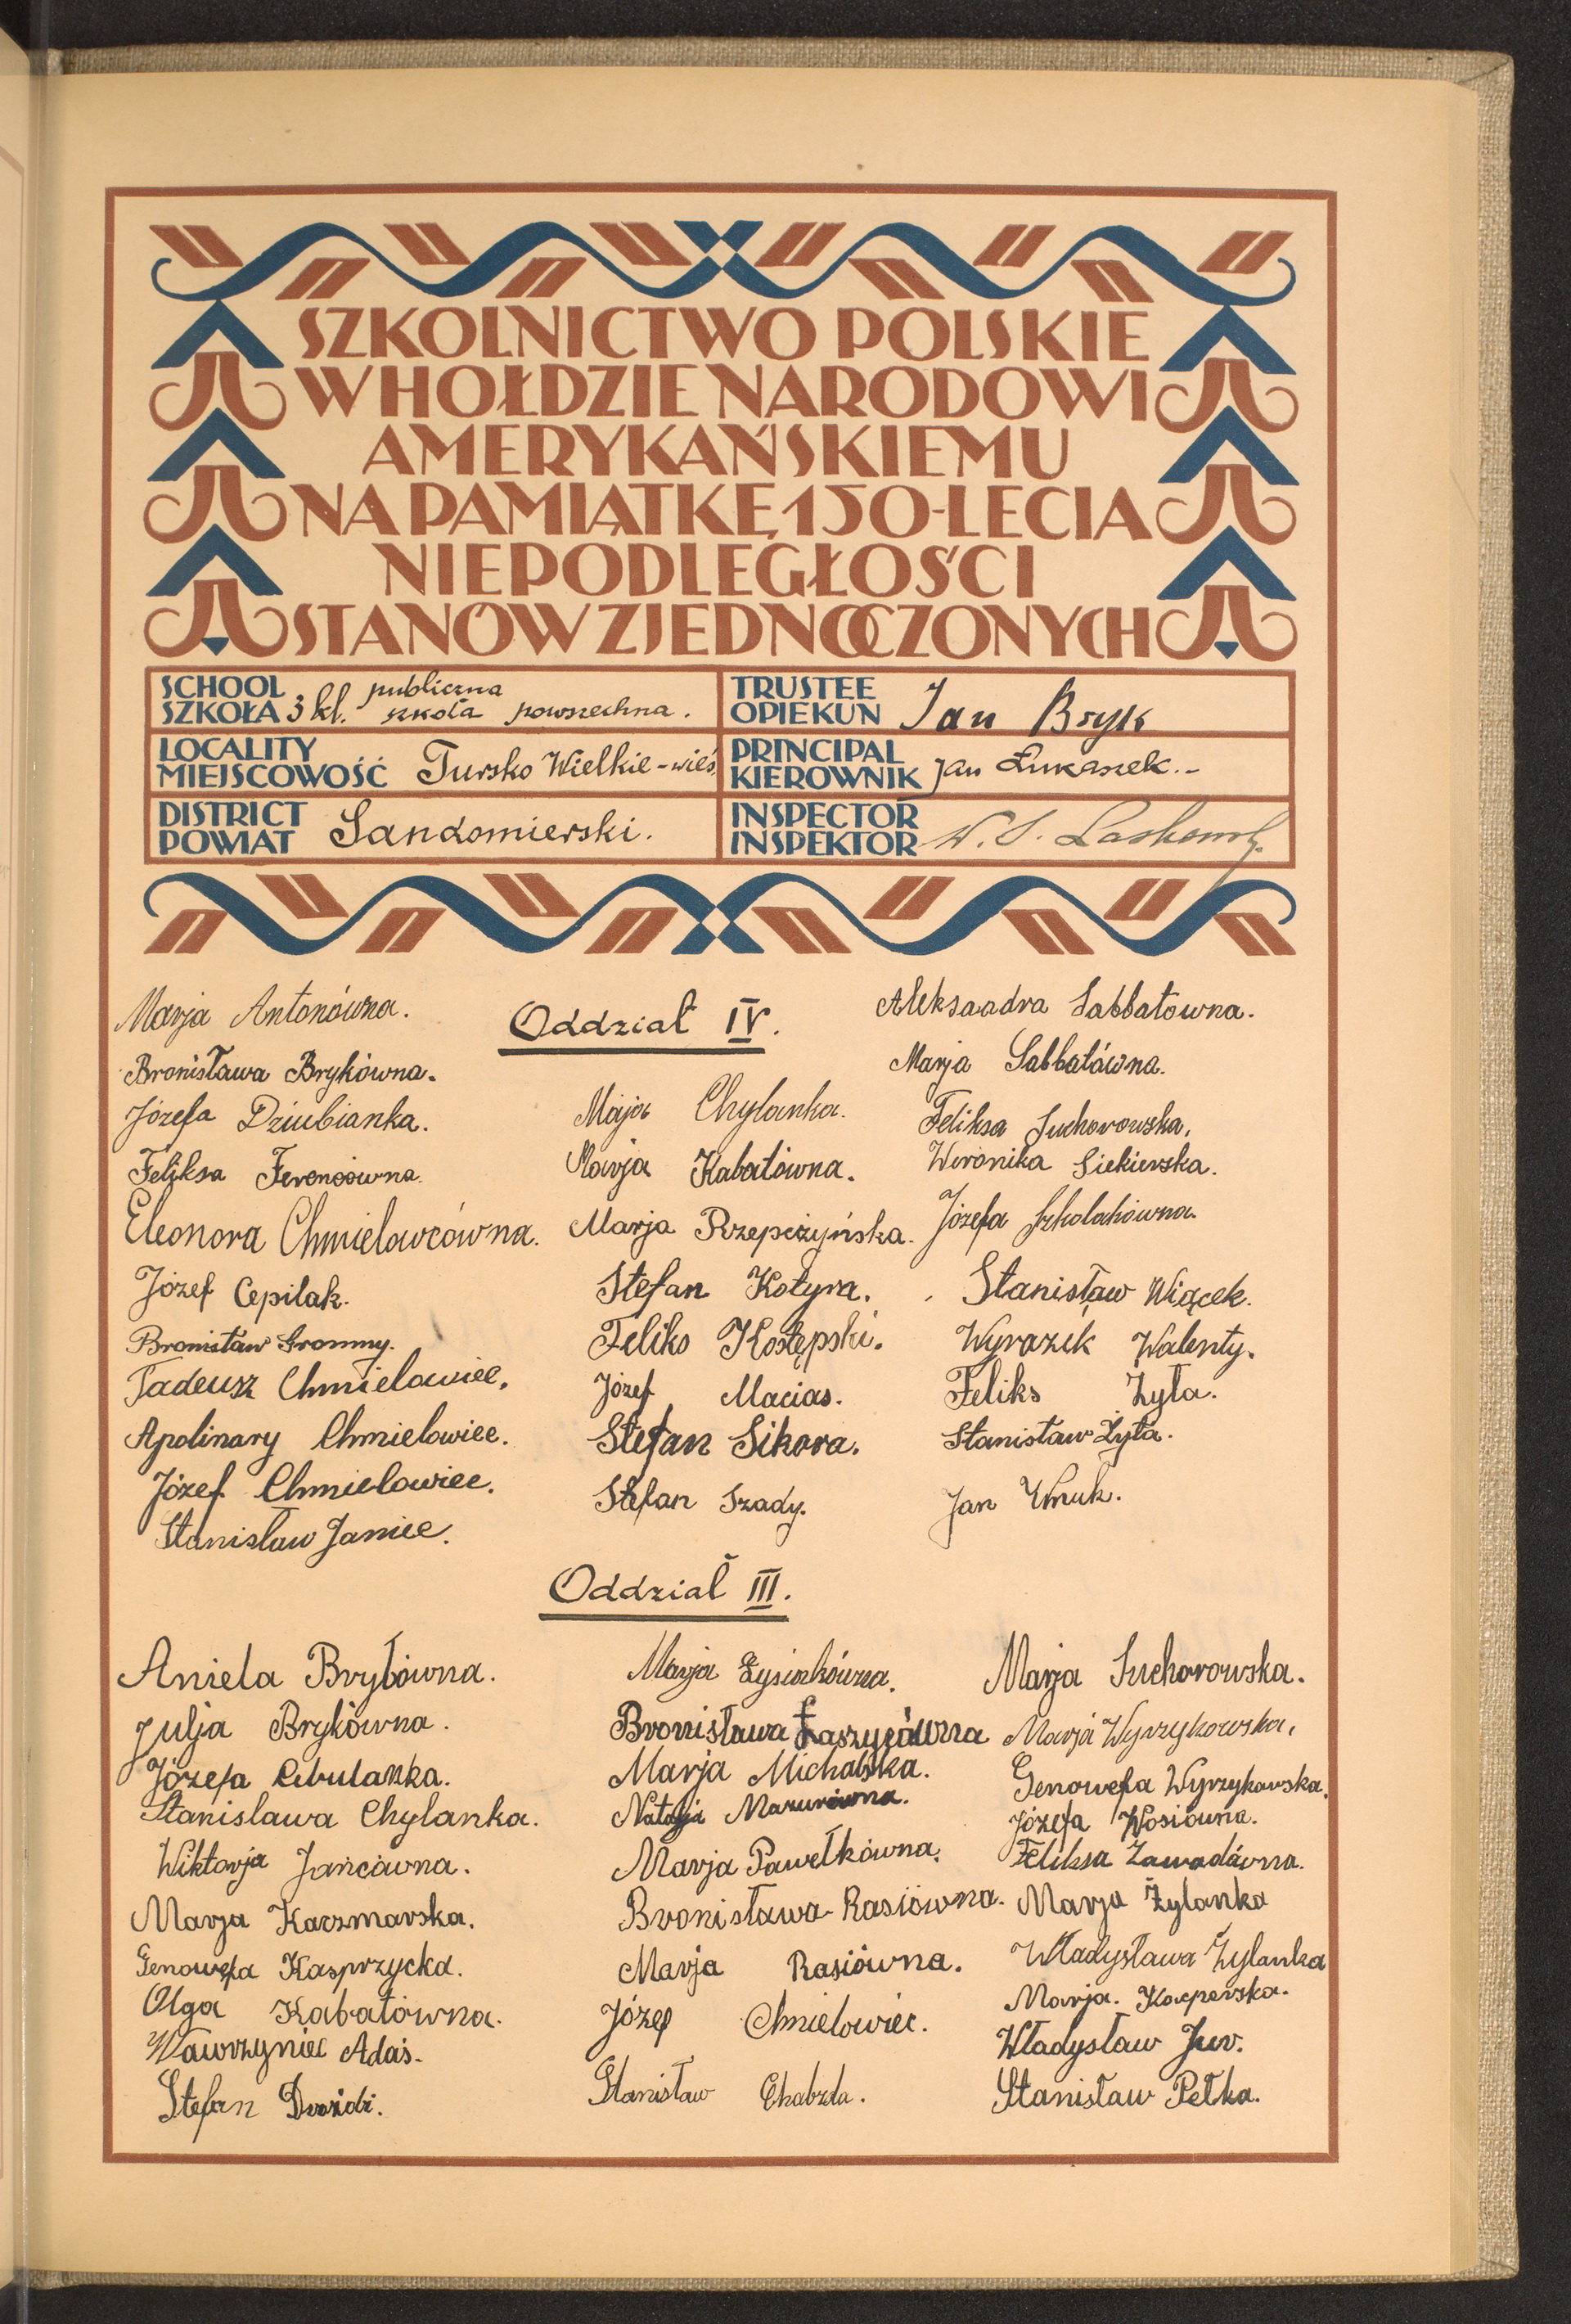 SZKOLNICTWO POLSKIE
W HOŁDZIE NARODOWI
AMERYKAŃSKIEMU
NA PAMIĄTKĘ 150-LECIA
NIEPODLEGŁOŚCI
STANÓW ZJEDNOCZONYCH
SCHOOL
SZKOŁA 3 kl. publiczna szkoła powszechna.
TRUSTEE
OPIEKUN Jan Bryk
LOCALITY
MIEJSCOWOŚĆ Tursko Wielkie-wieś
PRINCIPAL
KIEROWNIK Jan Łukaszek.-
DISTRICT
POWIAT Sandomierski.
INSPECTOR
INSPEKTOR W. S.
Oddział IV.
Marja Antonówna.
Bronisława Brykówna.
Józefa Dziubianka.
Feliksa Ferencówna.
Eleonora Chmielowcówna.
Józef Cepilak.
Bronisław Gromny.
Tadeusz Chmielowiec.
Apolinary Chmielowiec.
Józef Chmielowiec.
Stanisław Janiec.
Maja Chylanka.
Marja Kabatówna.
Marja Rzepczyńska.
Stefan Kotyra.
Feliks Kostępski.
Józef Macias.
Stefan Sikora.
Stefan Szady.
Aleksaadra Sabbatowna.
Marja Sabbatówna.
Feliksa Suchorowska.
Weronika Siekierska.
Józefa Szkolakówna.
Stanisław Wiącek.
Wyrazik Walenty.
Feliks Żyła.
Stanisław Żyła.
Jan Wnuk.
Oddział III.
Aniela Bryłówna.
Julja Brykówna.
Józefa Cebulanka.
Stanislawa Chylanka.
Wiktorja Jańcówna.
Marja Kaczmarska.
Genowefa Kasprzycka.
Olga Kabatówna.
Wawrzyniec Adaś.
Stefan
Marja Łysiakówna.
Bronisława Łaszycówna
Marja Michalska.
Natalja Mazurówna.
Marja Pawełkówna.
Bronisława Rasiówna.
Marja Rasiówna.
Józef Chmielowiec.
Stanisław Chabzda.
Marja Suchorowska.
Marja Wyrzykowska.
Genowefa Wyrzykowska.
Józefa Wosiówna.
Feliksa Zawadówna.
Marja Żylanka
Władysława Żylanka
Marja. Kacperska.
Władysław Jur.
Stanisław Pełka.